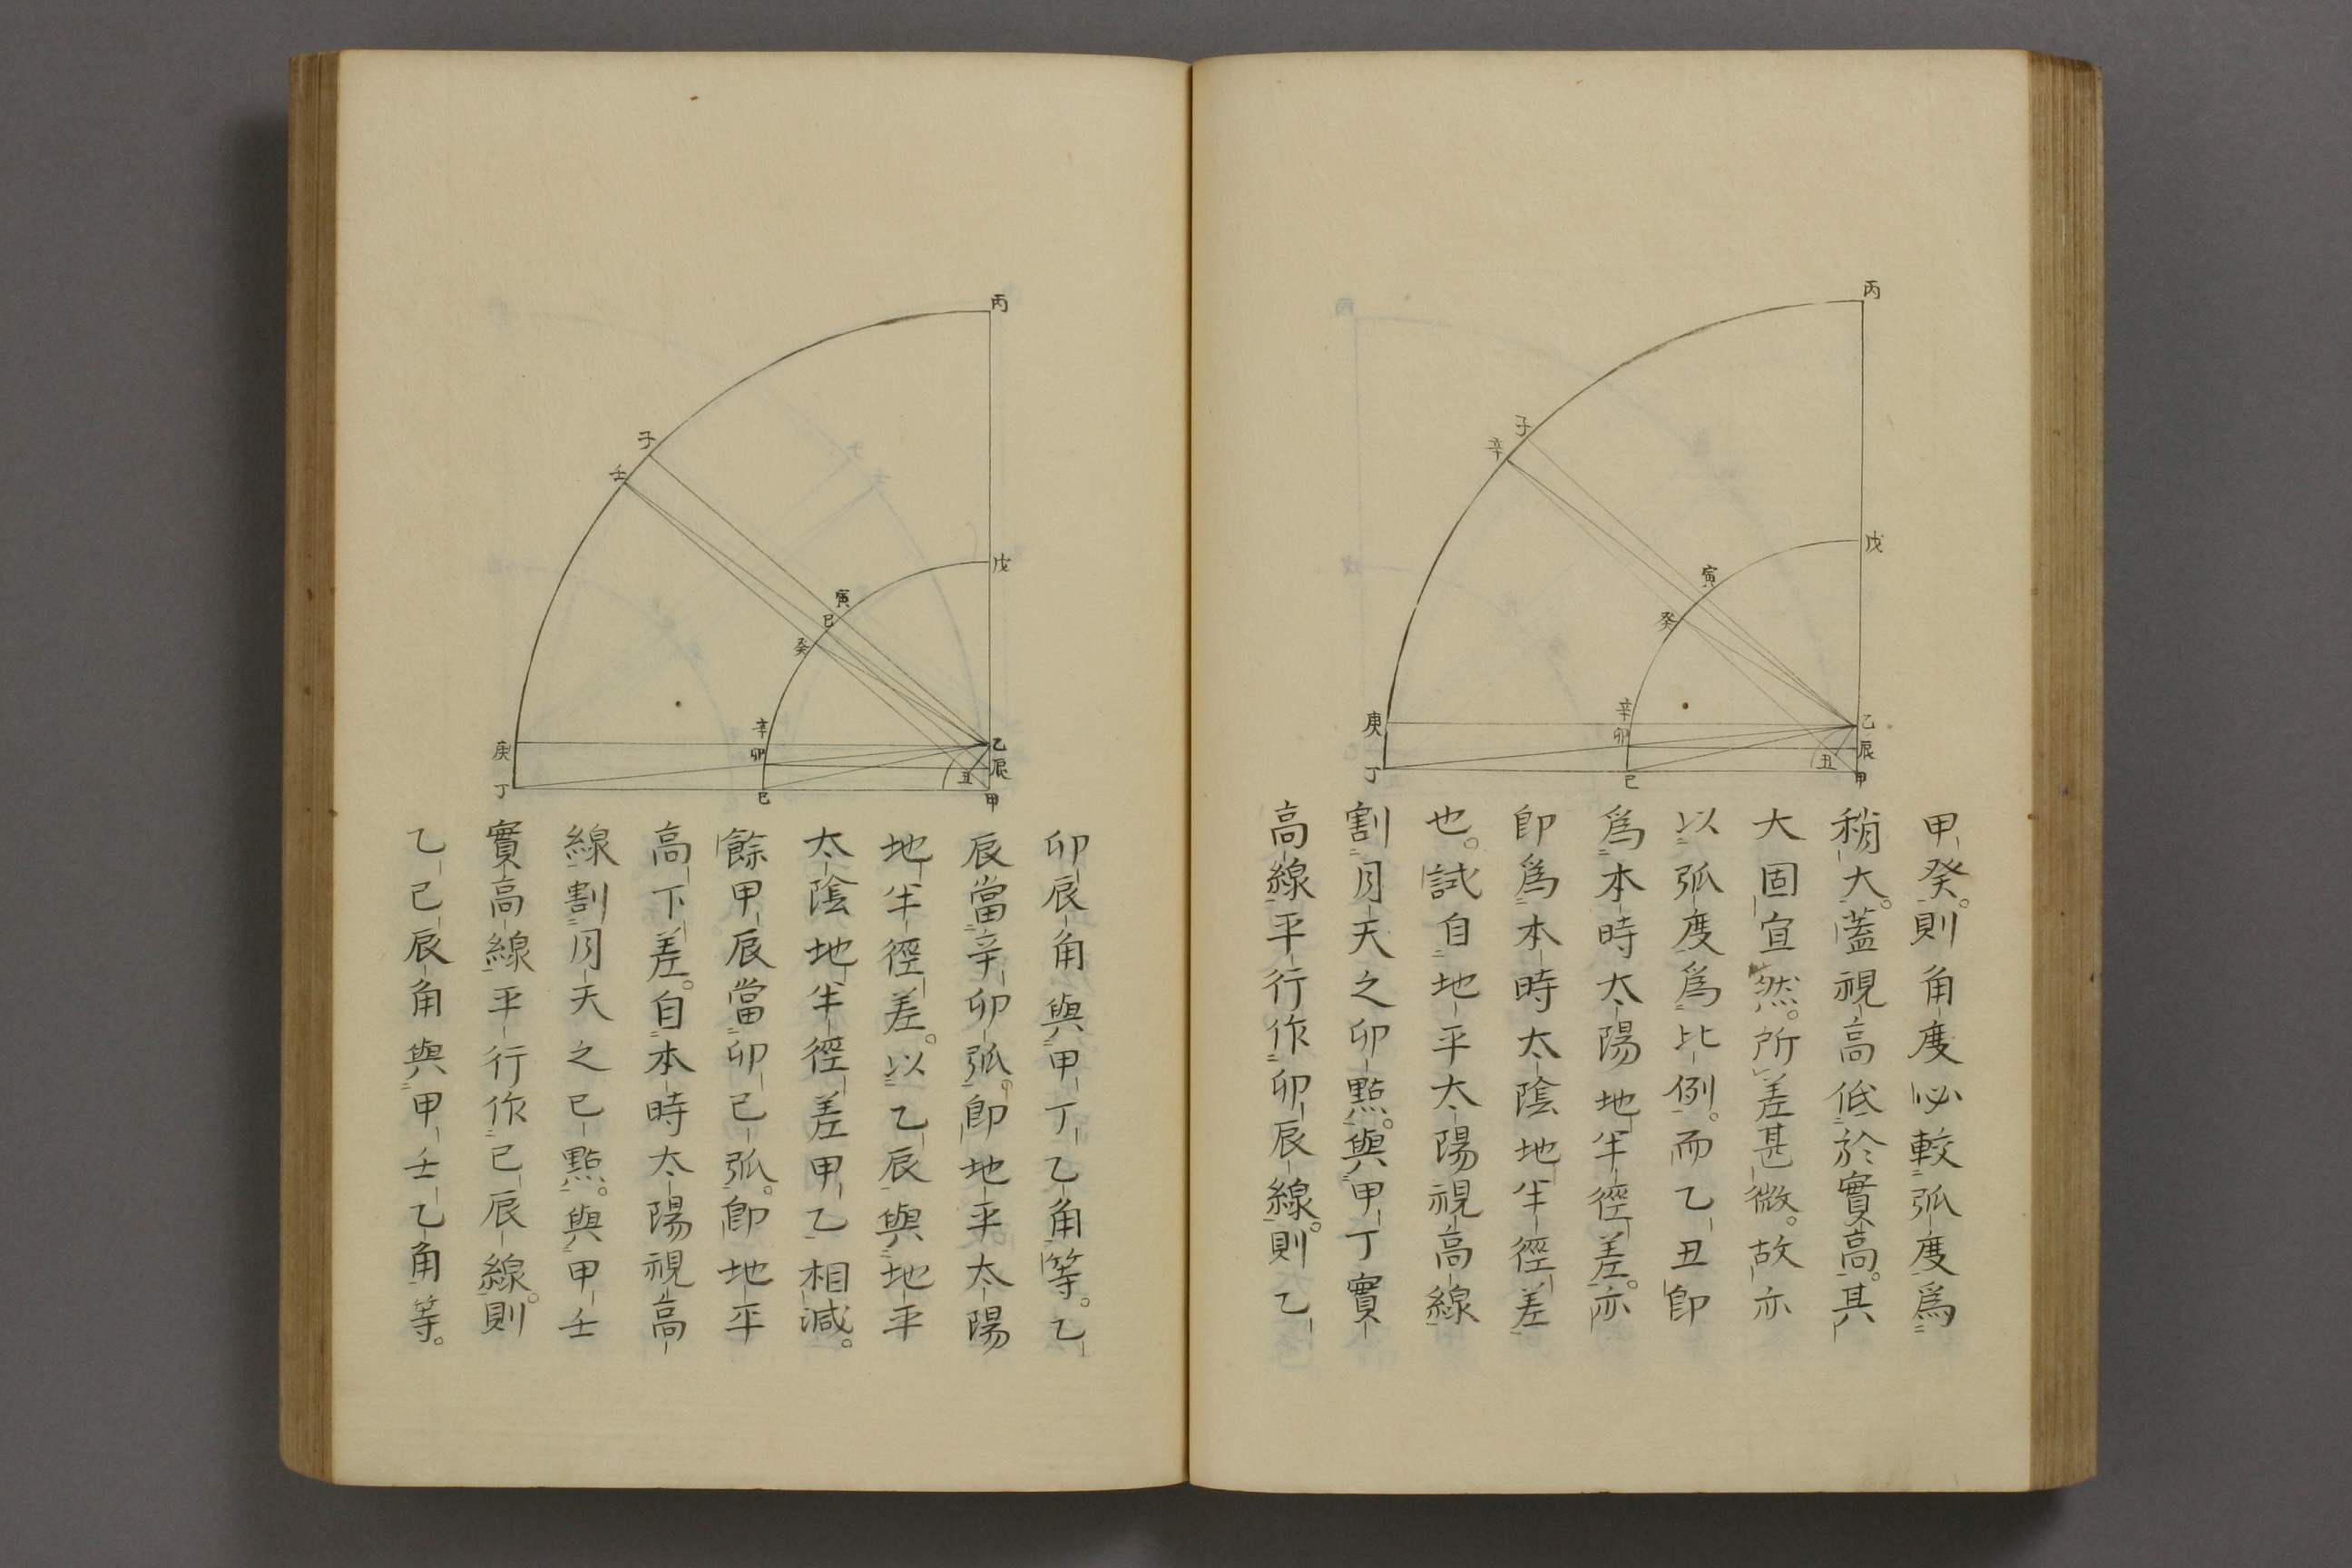 丙
子
辛
戊
寅
癸
庚
辛
卯
乙
辰
丑
丁
巳
甲
甲癸。則角度必較弧度爲
稍大。蓋視高低於實高。其
大固宜然。所差甚微。故亦
以弧度爲比例。而乙丑即
爲本時太陽地半徑差。亦
即爲本時太陰地半徑差
也。試自地平太陽視高線
割月天之卯點。與甲丁實
高線平行作卯辰線。則乙
丙
子
壬
戊
寅
巳
癸
庚
辛
卯
乙
辰
丑
丁
己
甲
卯辰角與甲丁乙角等。乙
辰當辛卯弧。即地平太陽
地半徑差。以乙辰與地平
太陰地半徑差甲乙相減。
餘甲辰當卯己弧。即地平
高下差。自本時太陽視高
線割月天之巳點。與甲壬
實高線平行作巳辰線。則
乙巳辰角與甲壬乙角等。